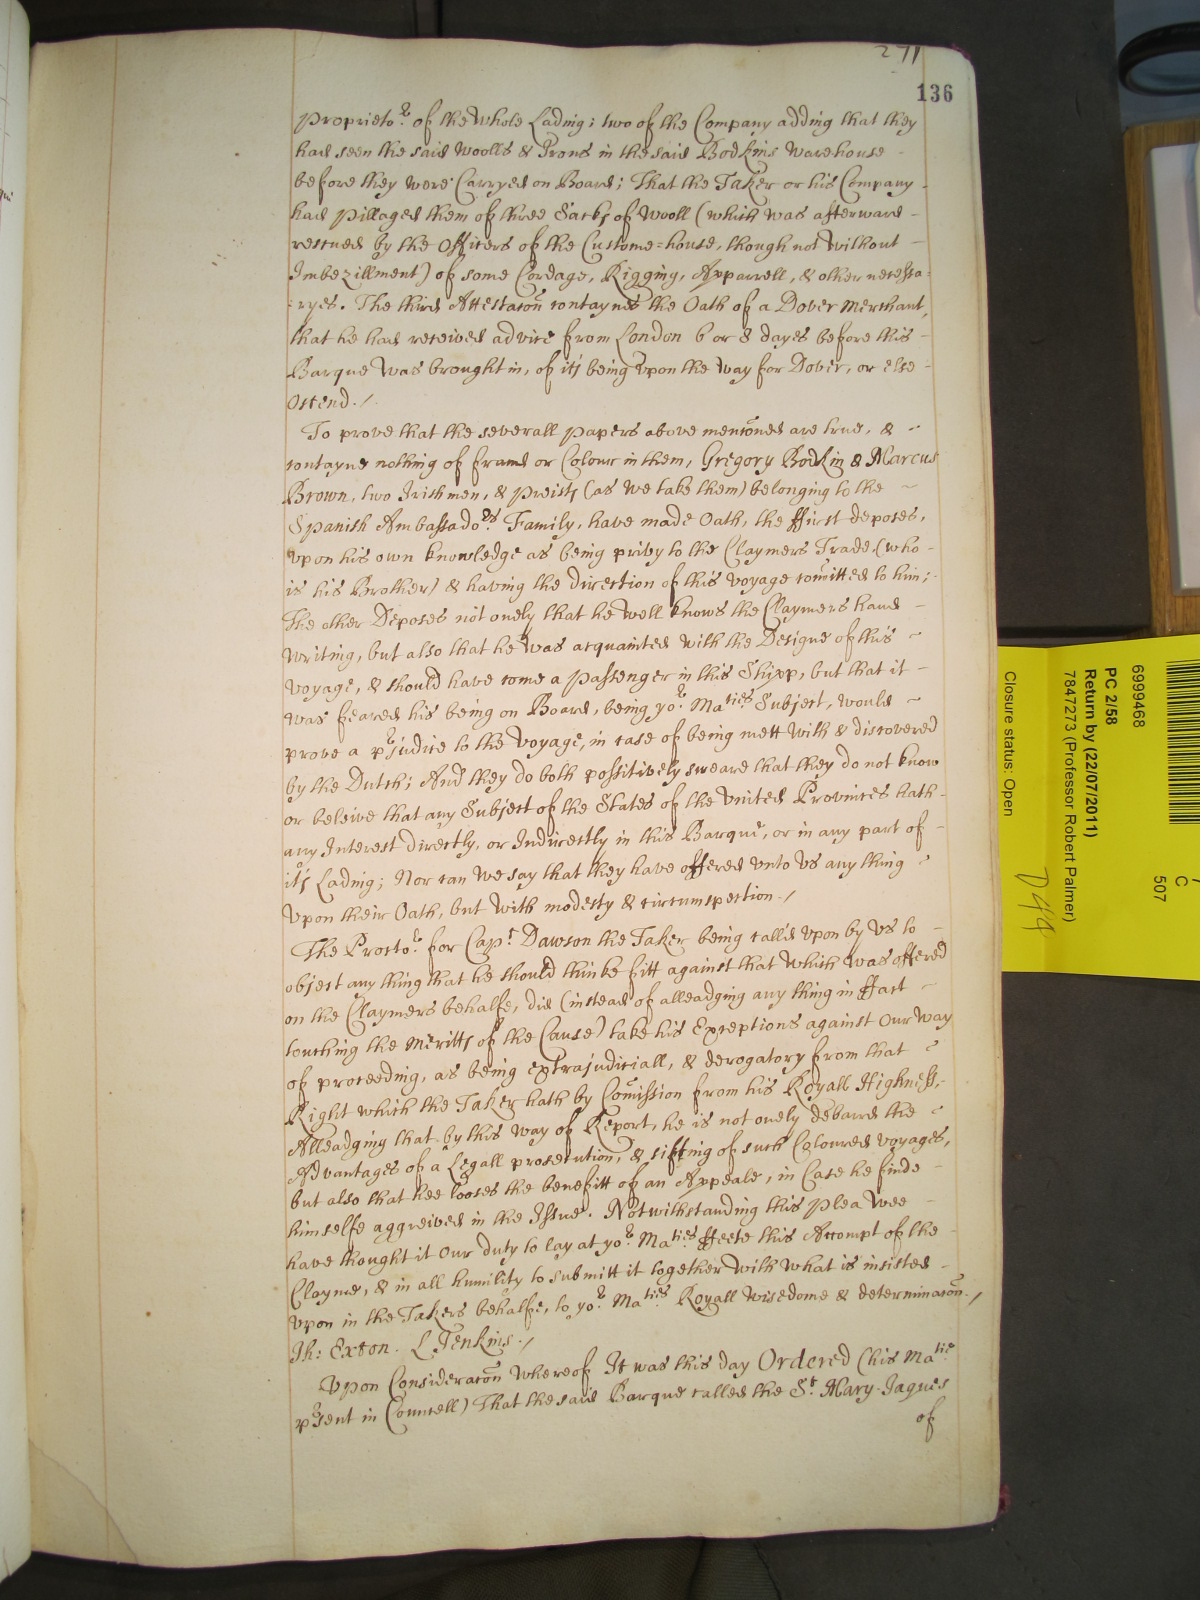 271
136
Proprieto.r of the whole Lading; two of the Company adding that they
had seen the said Woolls & Irons in the said Bodkins Warehouse
before they were Carryed on Board; That the Taker or his Company
had pillaged them of three Sacks of Wooll (which was afterward
rescued by the Officers of the Custome=house, though not without
Imbezillment) of some Cordage, Rigging, Apparrell, & other necessa=
=ryes. The third Attestacon contaynes the Oath of a Dover Merchant,
that he had received advice from London 6 or 8 dayes before this
Barque was brought in, of it's being upon the way for Dover, or else
Ostend./
To prove that the severall papers above menconed are true, &
contayne nothing of fraud or Colour in them, Gregory Bodkin & Marcus
Brown, two Irishmen, & preists (as we take them) belonging to the
Spanish Ambassado.rs Family, have made Oath, the ffirst deposes,
vpon his own knowledge as being privy to the Claymers Trade (who
is his Brother) & having the direction of this voyage comitted to him;
The other Deposes not onely that he well knows the Claymers hand
writing, but also that he was acquainted with the Designe of this
voyage, & should have come a passenger in this Shipp, but that it
was feared his being on Board, being yo.r Ma.ties Subject, would
prove a p'judice to the voyage, in case of being mett with & discovered
by the Dutch; And they do both possitively sweare that they do not know
or beleive that any Subject of the States of the vnited Provinces hath
any Interest directly, or Indirectly in this Barque, or in any part of
it's Lading; Nor can we say that they have offered vnto vs any thing
vpon their Oath, but with modesty & circumspection./
The Procto.r for Cap.t Dawson the Taker being call'd vpon by vs to
object any thing that he should thinke fitt against that which was offered
on the Claymers behalfe, did (instead of alleadging any thing in ffact
touching the Meritts of the Cause) take his Exceptions against our way
of proceeding, as being extrajudiciall, & derogatory from that
Right which the Taker hath by Comission from his Royall Highness,
Alleadging that by this way of Report, he is not onely debarrd the
Advantages of a Legall prosecution, & sifting of such Coloured voyages,
but also that hee looses the benefitt of an Appeale, in Case he finde
himselfe aggreived in the Issue. Notwithstanding this plea wee
have thought it our duty to lay at yo.r Ma.ties ffeete this Accompt of the
Clayme, & in all humility to submitt it together with what is insisted
vpon in the Takers behalfe, to yo.r Ma.ties Royall wisedome & determinacon./
Th: Exton. L Jenkins./
Vpon Consideracon whereof It was this day Ordered (his Ma.tie
p'sent in Councell) That the said Barque called the S.t Mary Jaques
of
6999468
PC 2/58
Return by (22/07/2011)
7847273 (Professor Robert Palmer)
Closure status: Open
C
507
D49